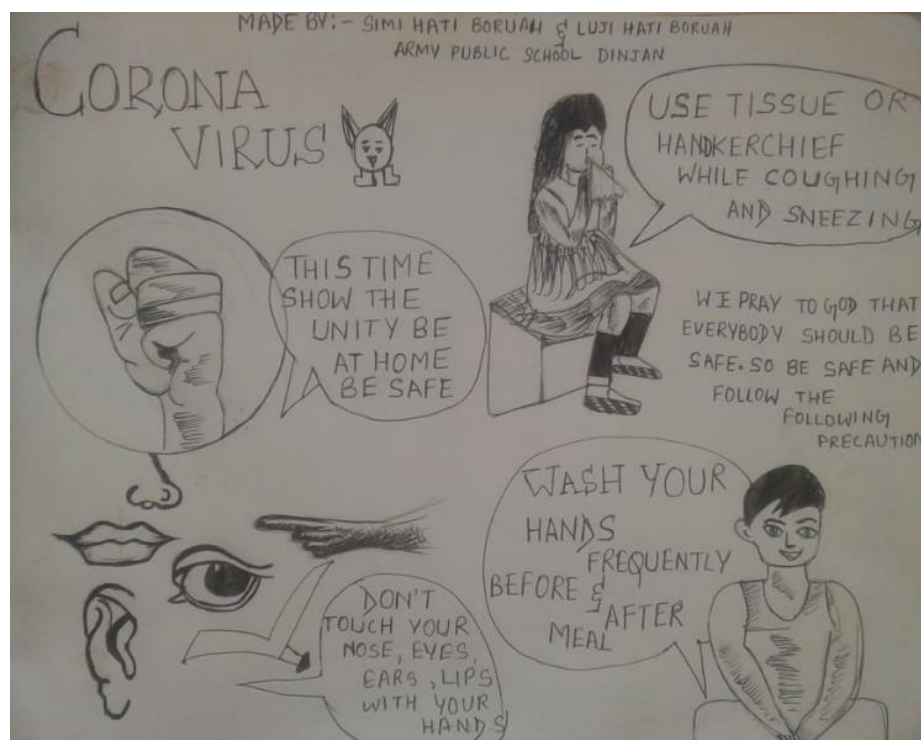 MADE BY:- SIMI HATI BORUAH & LUJI HATI BORUAH
ARMY PUBLIC SCHOOL DINJAN
CORONA
VIRUS
USE TISSUE OR
HANDKERCHIEF
WHILE COUGHING
AND SNEEZING
THIS TIME
SHOW THE
UNITY BE
AT HOME
BE SAFE
WE PRAY TO GOD THAT
EVERYBODY SHOULD BE
SAFE. SO BE SAFE AND
FOLLOW THE
FOLLOWING
PRECAUTION
WASH YOUR
HANDS
FREQUENTLY
BEFORE &
AFTER
MEAL
DON'T
TOUCH YOUR
NOSE, EYES,
EARS, LIPS
WITH YOUR
HANDS